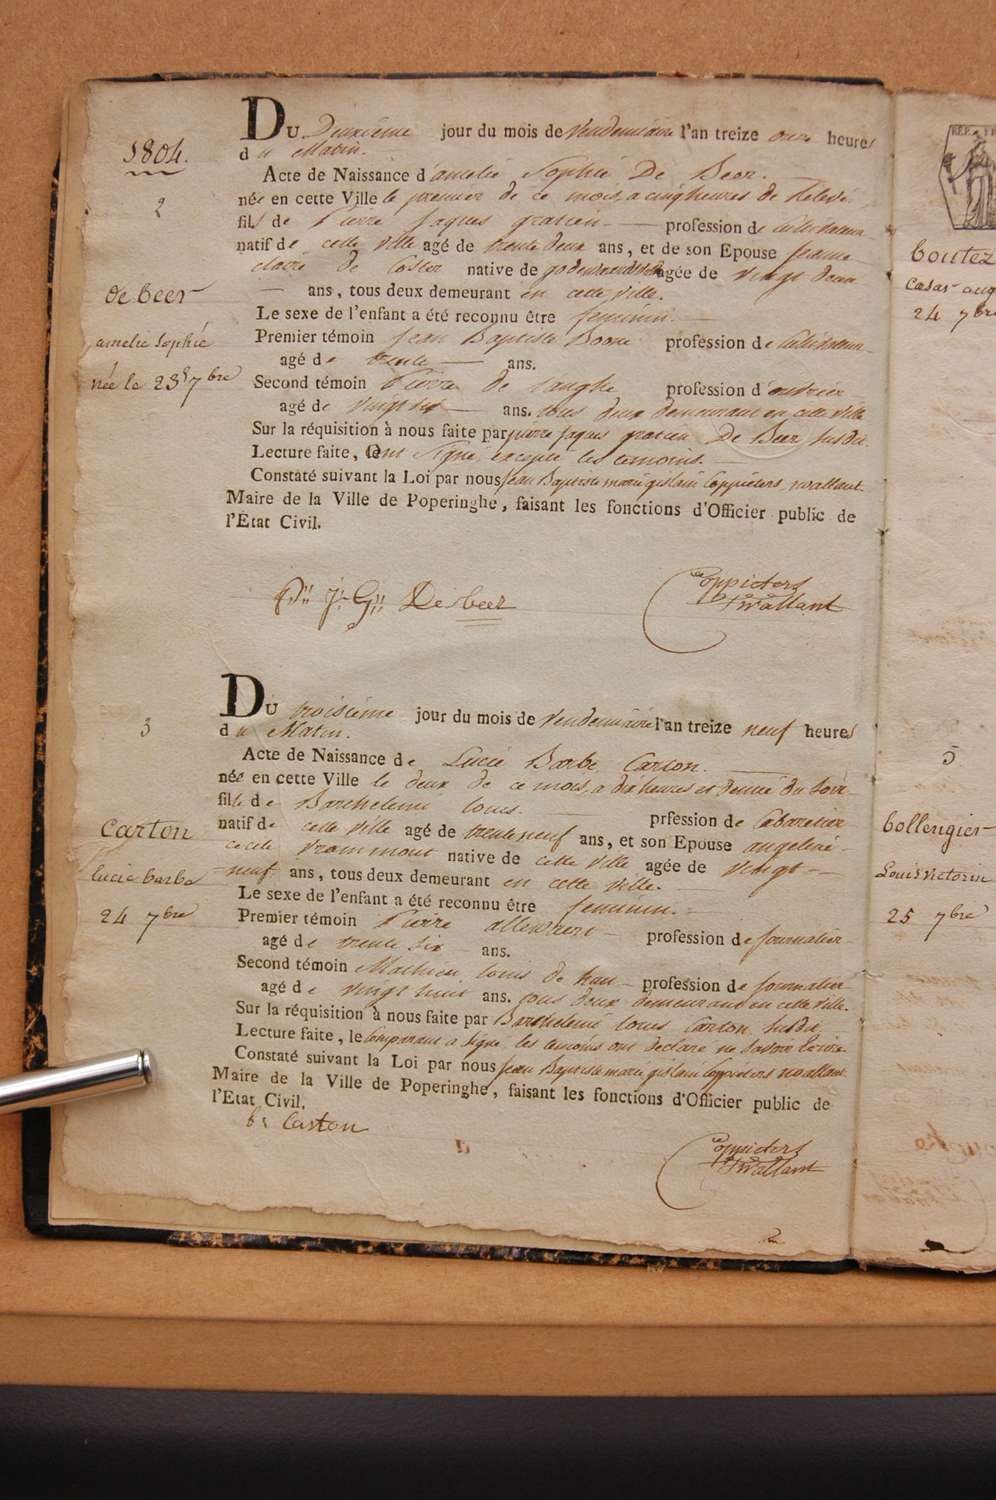 1804.
2
de beer
amelie sophie
née le 23 7bre
Du Deuxième jour du mois de Vendemiaire l'an treize onze heures
du Matin.
Acte de Naissance d'amelie Sophie De Beer.
née en cette Ville le premier de ce mois, a cinq heures de Relevé.
fille de Pierre Jaques gratien profession de cultivateur
natif de cette ville agé de trente deux ans, et de son Epouse jeanne
claire de Coster native de agée de vingt deux
ans, tous deux demeurant en cette ville.
Le sexe de l'enfant a été reconnu être feminin.
Premier témoin jean Baptiste Boone profession de cultivateur
agé de trente ans.
Second témoin Pierre de langhe profession d'ouvrier
agé de vingt six ans. tous deux demeurant en cette ville
Sur la réquisition à nous faite par pierre jaques gratien De Beer susdit.
Lecture faite, ont signé excepté les temoins.
Constaté suivant la Loi par nous jean Baptiste marie gislain Coppieters wallant
Maire de la Ville de Poperinghe, faisant les fonctions d'Officier public de
l'État Civil.
Prre Jq Gn De beer
Coppieters
wallant
3
Carton
lucie barbe
24 7bre
Du troisième jour du mois de Vendemiaire l'an treize neuf heures
du Matin.
Acte de Naissance de Lucie Barbe Carton.
née en cette Ville le deux de ce mois, a dix heures et demie du soir
fille de Barthelemi louis. prfession de Cabaretier
natif de cette ville agé de trente neuf ans, et son Epouse angeline
cecile vrammout native de cette ville agée de vingt
neuf ans, tous deux demeurant en cette ville.
Le sexe de l'enfant a été reconnu être feminin.
Premier témoin Pierre allewaert profession de journalier
agé de trente six ans.
Second témoin Mathieu louis de han profession de journalier
agé de vingt huit ans. tous deux demeurant en cette ville.
Sur la réquisition à nous faite par Barthelemi louis Carton susdit
Lecture faite, le Comparant a signé les temoins ont declaré ne savoir Ecrire
Constaté suivant la Loi par nous jean Baptiste marie gislain Coppieters wallant
Maire de la Ville de Poperinghe, faisant les fonctions d'Officier public de
l'Etat Civil.
br Carton
Coppieters
wallant
boutez
24 7bre
5
bollengier
Louis victorin
25 7bre